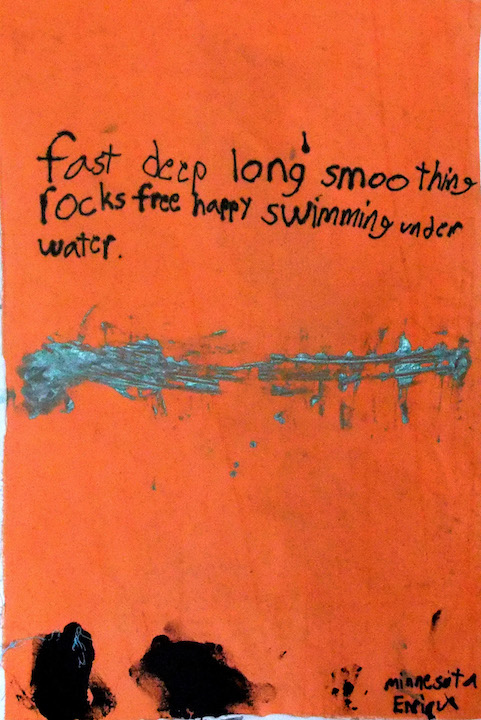 fast deep long smoothing
rocks free happy swimming under
water.
minnesota
Enrique